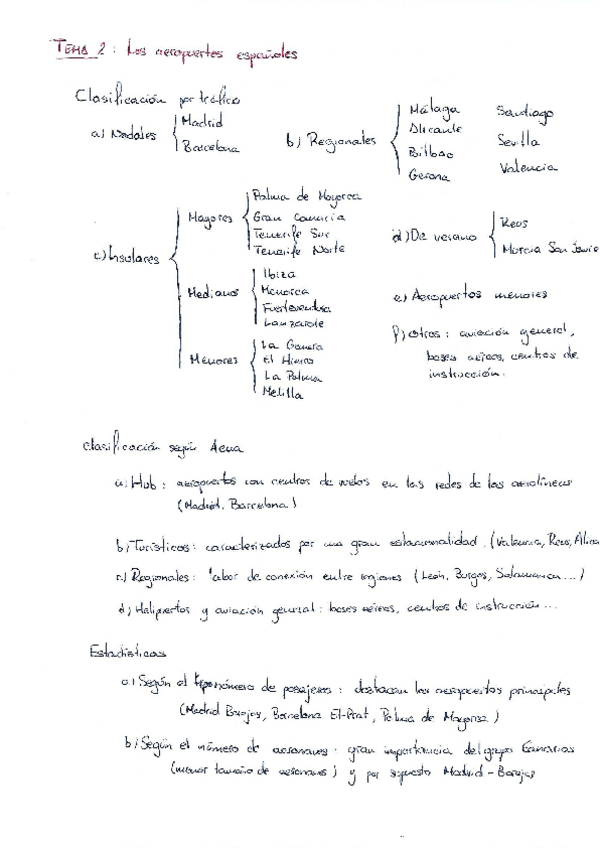 TEMA 2: Los aeropuertos españoles
Clasificación por tráfico
a) Nodales
Madrid
Barcelona
b) Regionales
Málaga
Alicante
Bilbao
Gerona
Santiago
Sevilla
Valencia
c) Insulares
Mayores
Palma de Mayorca
Gran Canaria
Tenerife Sur
Tenerife Norte
Medianos
Ibiza
Menorca
Fuerteventura
Lanzarote
Menores
La Gomera
El Hierro
La Palma
Melilla
d) De verano
Reus
Murcia San Javier
e) Aeropuertos menores
f) Otros: aviación general,
bases aéreas, centros de
instrucción.
Clasificación según Aena
a) Hub: aeropuertos con centros de vuelos en las redes de las aerolíneas
(Madrid, Barcelona)
b) Turísticos: caracterizados por una gran estacionalidad. (Valencia, Reus, Alica
c) Regionales: labor de conexión entre regiones (León, Burgos, Salamanca...)
d) Helipuertos y aviación general: bases aéreas, centros de instrucción...
Estadísticas
a) Según el número de pasajeros: destacan los aeropuertos principales
(Madrid Barajas, Barcelona El-Prat, Palma de Mayorca)
b) Según el número de aeronaves: gran importancia del grupo Canarias
(menor tamaño de aeronaves) y por supuesto Madrid-Barajas